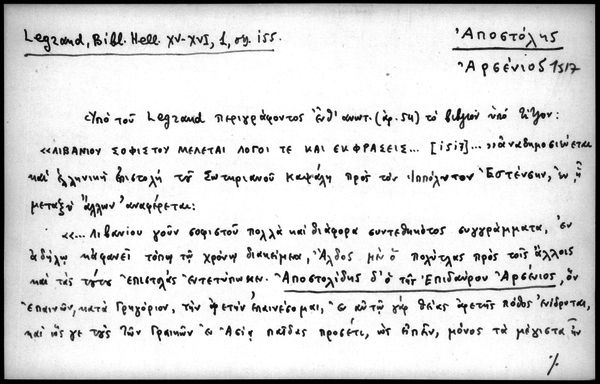 Legrand, Bibl. Hell. XV-XVI, 1, ση. 155.
Ἀποστόλης
Ἀρσένιος 1517
Ὑπὸ τοῦ Legrand περιγράφοντος ἔνθ' ἀνωτ. (ἀρ. 54) τὸ βιβλίον ὑπὸ τίτλον:
«ΛΙΒΑΝΙΟΥ ΣΟΦΙΣΤΟΥ ΜΕΛΕΤΑΙ ΛΟΓΟΙ ΤΕ ΚΑΙ ΕΚΦΡΑΣΕΙΣ... [1517]...» ἀναδημοσιεύεται
καὶ ἑλληνικὴ ἐπιστολὴ τοῦ Σωτηριανοῦ Καψάλη πρὸς τὸν Ἱππόλυτον Ἐστένσην, ἐν ᾗ
μεταξὺ ἄλλων ἀναφέρεται:
«... Λιβανίου γοῦν σοφιστοῦ πολλὰ καὶ διάφορα συντεθηκότος συγγράμματα, ἐν
ἀδήλῳ κἀφανεῖ τόπῳ τῷ χρόνῳ διακείμενα, Ἄλδος μὲν ὁ πολύτλας πρὸς τοῖς ἄλλοις
καὶ τὰς τούτου ἐπιστολὰς ἐντετύπωκεν. Ἀποστολίδης δ' ὁ τῆς Ἐπιδαύρου Ἀρσένιος, ὃν
ἐπαινῶν, κατὰ Γρηγόριον, τὴν ἀρετὴν ἐπαινέσομαι, ἐν αὐτῷ γὰρ θείας ἀρετῆς πόθος ἐνίδρυται,
καὶ ὃς γε τοὺς τῶν Γραικῶν ἐν Ἀσίᾳ παῖδας προσέτι, ὡς εἰπεῖν, μόνος τὰ μέγιστα ἦν
%